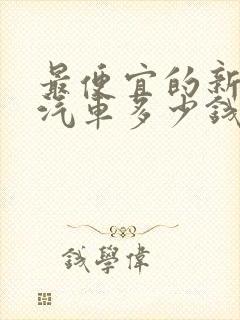 最便宜的新
汽車多少錢
錢學偉